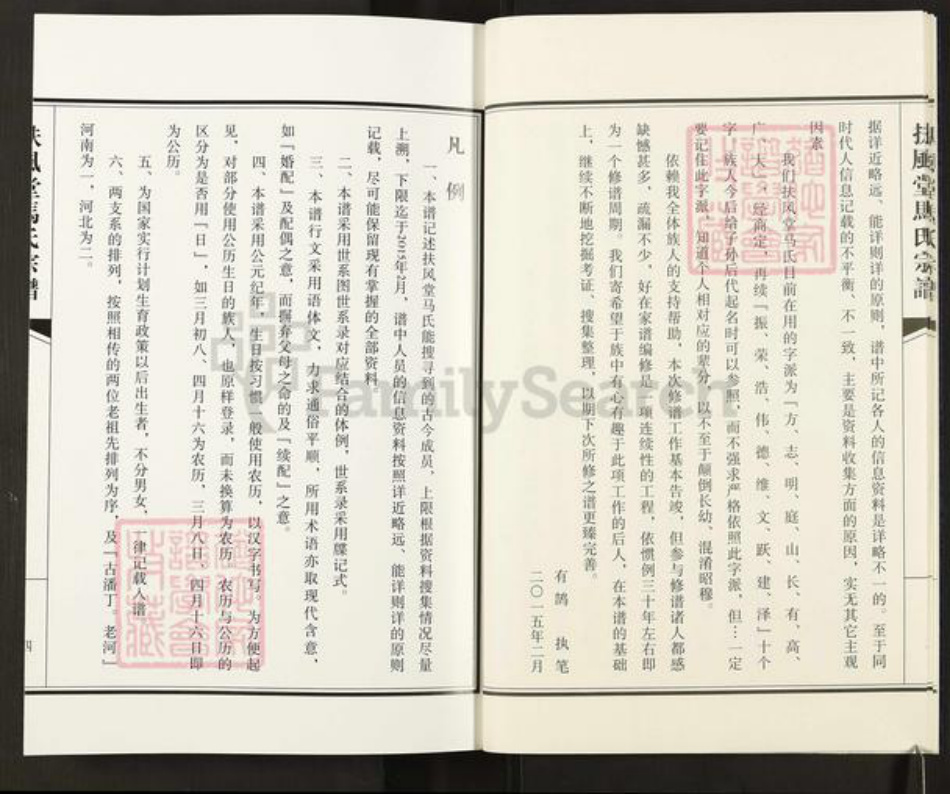 扶風堂馬氏宗譜
据详近略远、能详则详的原则，谱中所记各人的信息资料是详略不一的。至于同
时代人信息记载的不平衡、不一致，主要是资料收集方面的原因，实无其它主观
因素
我们扶风堂马氏目前在用的字派为「方、志、明、庭、山、长、有、高、
广、大」，经商定，再续「振、荣、浩、伟、德、维、文、跃、建、泽」十个
字，族人今后给子孙后代起名时可以参照，而不强求严格依照此字派，但…一定
要记住此字派，知道个人相对应的辈分，以不至于颠倒长幼、混淆昭穆。
依赖我全体族人的支持帮助，本次修谱工作基本告竣，但参与修谱诸人都感
缺憾甚多，疏漏不少，好在家谱编修是一项连续性的工程，依惯例三十年左右即
为一个修谱周期。我们寄希望于族中有心有趣于此项工作的后人，在本谱的基础
上，继续不断地挖掘考证、搜集整理，以期下次所修之谱更臻完善。
有鹄 执笔
二〇一五年二月
凡例
一、本谱记述扶风堂马氏能搜寻到的古今成员，上限根据资料搜集情况尽量
上溯，下限迄于2015年2月，谱中人员的信息资料按照详近略远、能详则详的原则
记载，尽可能保留现有掌握的全部资料。
二、本谱采用世系图世系录对应结合的体例，世系录采用牒记式。
三、本谱行文采用语体文，力求通俗平顺，所用术语亦取现代含意，
如「婚配」及配偶之意，而摒弃父母之命的及「续配」之意。
四、本谱采用公元纪年，生日按习惯一般使用农历，以汉字书写。为方便起
见，对部分使用公历生日的族人，也原样登录，而未换算为农历，农历与公历的
区分为是否用「日」，如三月初八、四月十六为农历，三月八日、四月十六日即
为公历。
五、为国家实行计划生育政策以后出生者，不分男女，一律记载入谱
六、两支系的排列，按照相传的两位老祖先排列为序，及「古潘丁。老河」
河南为一，河北为二。
扶風堂馬氏宗譜
四
FamilySearch